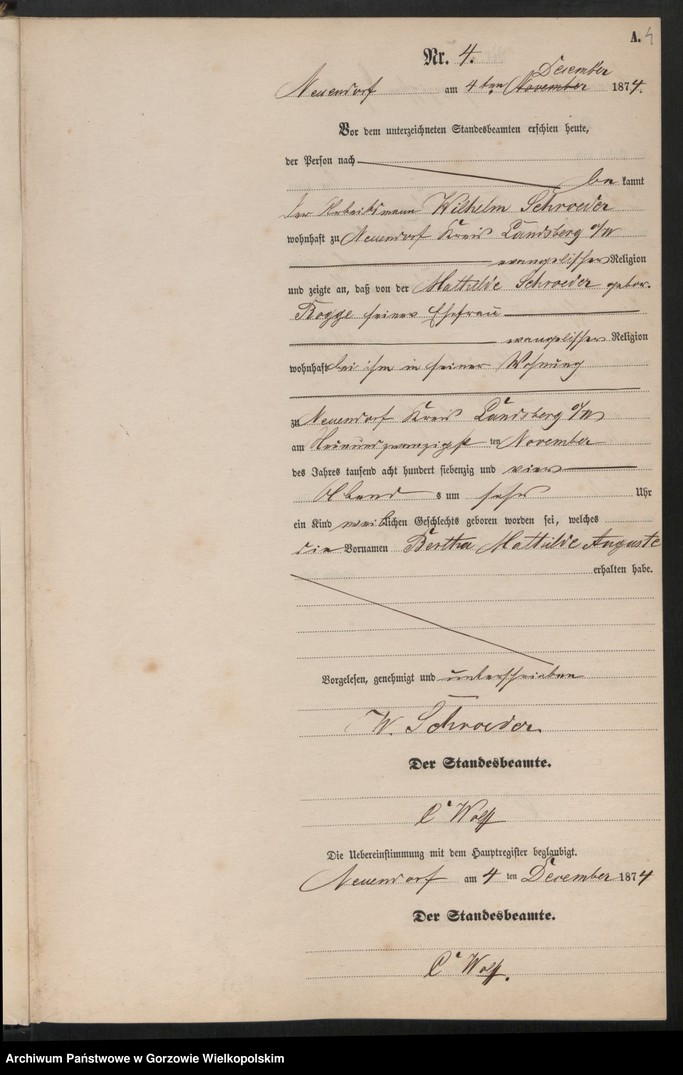 A. 4
Nr. 4.
December
Neuendorf am 4 ten November 1874.
Vor dem unterzeichneten Standesbeamten erschien heute,
der Person nach
be kannt
der Arbeitsmann Wilhelm Schroeder
wohnhaft zu Neuendorf Kreis Landsberg a/W
evangelischer Religion
und zeigte an, daß von der Mathilde Schroeder gebor.
Rogge seiner Ehefrau
evangelischer Religion
wohnhaft bei ihm in seiner Wohnung
zu Neuendorf Kreis Landsberg a/W
am Neunundzwanzigst ten November
des Jahres tausend acht hundert siebenzig und vier
Abend s um sechs Uhr
ein Kind weiblichen Geschlechts geboren worden sei, welches
die Vornamen Bertha Mathilde Auguste
erhalten habe.
Vorgelesen, genehmigt und unterschrieben
W. Schroeder
Der Standesbeamte.
C Wolff
Die Uebereinstimmung mit dem Hauptregister beglaubigt.
Neuendorf am 4 ten December 1874
Der Standesbeamte.
C Wolff.
Archiwum Państwowe w Gorzowie Wielkopolskim